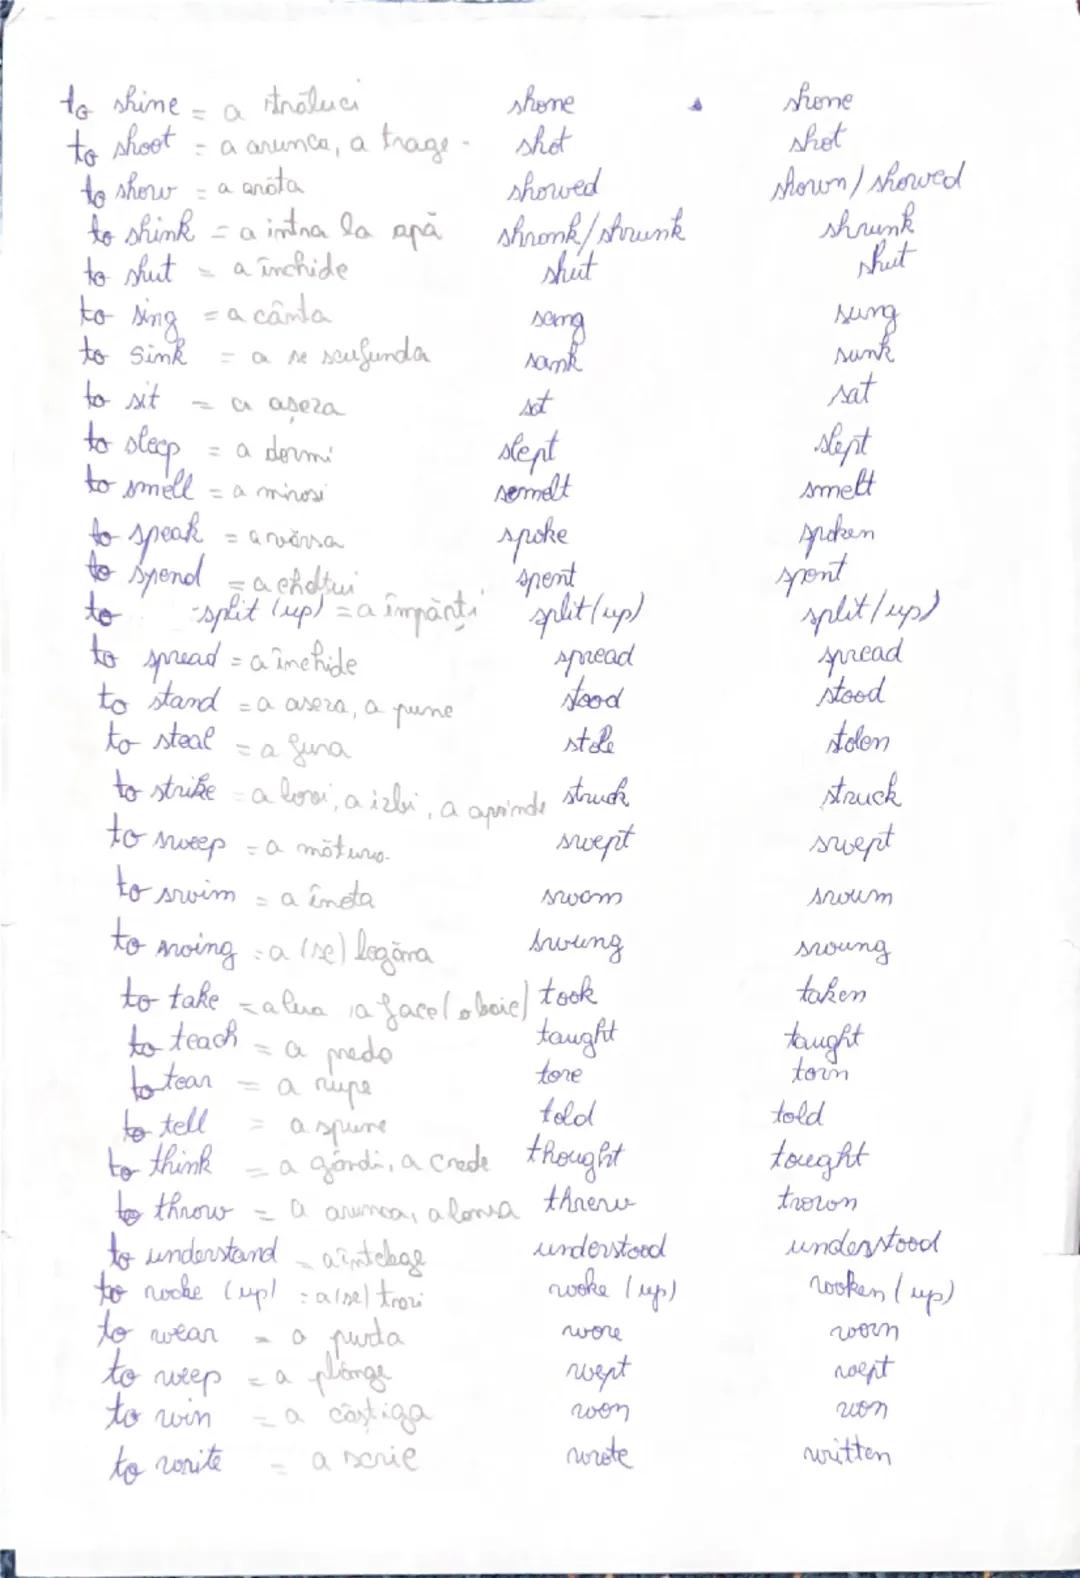 to shine = a străluci shone shone
to shoot = a arunca, a trage - shot shot
to show = a arăta showed shown/showed
to shink = a intra la apă shronk/shrunk shrunk
to shut = a închide shut shut
to sing = a cânta sang sung
to sink = a se scufunda sank sunk
to sit = a așeza sat sat
to sleep = a dormi slept slept
to smell = a mirosi semelt smelt
to speak = a vărsa spoke spoken
to spend = a cheltui spent spent
to split (up) = a împărți split (up) split (up)
to spread = a închide spread spread
to stand = a aseza, a pune stood stood
to steal = a fura stole stolen
to strike = a lovi, a izbi, a aprinde struck struck
to sweep = a mătura swept swept
to swim = a înota swam swum
to swing = a (se) legăna swung swung
to take = a lua, a face (o baie) took taken
to teach = a preda taught taught
to tear = a rupe tore torn
to tell = a spune told told
to think = a gândi, a crede thought tought
to throw = a arunca, a lansa threw trown
to understand = a înțelege understood understood
to wake (up) = a (se) trezi woke (up) wooken (up)
to wear = a purta wore worn
to weep = a plânge wept wept
to win = a câștiga won won
to write = a scrie wrote written